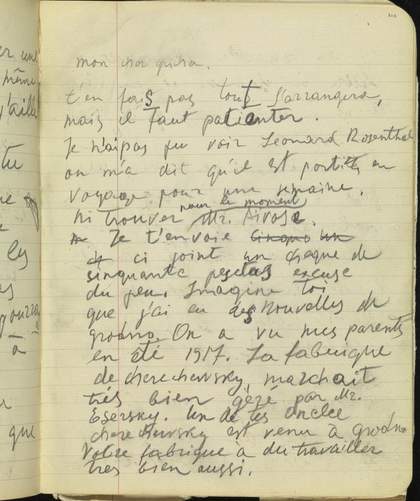 mon cher
t'en fais pas tout s'arrangera,
mais il faut patienter.
Je n'ai pas pu voir Leonard Rosenthal
on m'a dit qu'il est en
voyage pour une semaine.
pour le moment
Ni trouver Mr.
Je t'envoie
ci joint un cheque de
sinquante pesetas excuse
du peu. Imagine toi
que j'ai eu des Nouvelles de
grodno. On a vu mes parents
en été 1917. La fabrique
de cherechevsky, marchait
très bien gérè par Mr.
Esersky. Un de tes oncles
cherechevsky est venu a grodno
Votre fabrique a du travailler
tres bien aussi.
er une
même
tu
les
que